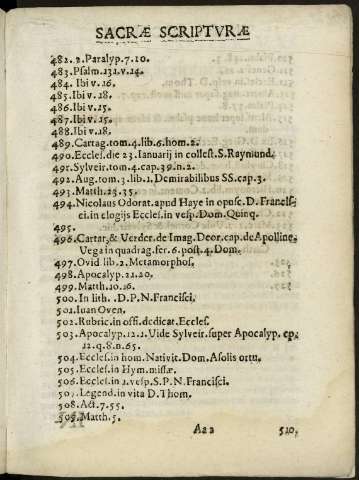 SACRÆ SCRIPTVRÆ
482. 2. Paralyp. 7. 10.
483. Psalm. 131. v. 14.
484. Ibi v. 16.
485. Ibi v. 18.
486. Ibi v. 15.
487. Ibi v. 15.
488. Ibi v. 18.
489. Cartag. tom. 4. lib. 6. hom. 2.
490. Eccles. die 23. Ianuarij in collect. S. Raymund.
491. Sylveir. tom. 4. cap. 39. n. 2.
492. Aug. tom. 3. lib. 1. Demirabilibus SS. cap. 3.
493. Matth. 25. 35.
494. Nicolaus Odorat. apud Haye in opusc. D. Francis-
ci. in elogijs Eccles. in vesp. Dom. Quinq.
495.
496. Cartar. & Verder. de Imag. Deor. cap. de Apolline.
Vega in quadrag. fer. 6. post. 4. Dom.
497. Ovid lib. 2. Metamorphos.
498. Apocalyp. 21. 20.
499. Matth. 10. 16.
500. In lith. . D. P. N. Francisci.
501. Iuan Oven.
502. Rubric. in offi. dedicat. Eccles.
503. Apocalyp. 12. 1. Vide Sylveir. super Apocalyp. cp.
12. q. 8. n. 65.
504. Eccles. in hom. Nativit. Dom. Asolis ortu.
505. Eccles. in Hym. missæ.
506. Eccles. in 1. vesp. S. P. N. Francisci.
507. Legend. in vita D. Thom.
508. Act. 7. 55.
509. Matth. 5.
Aa 2 510.